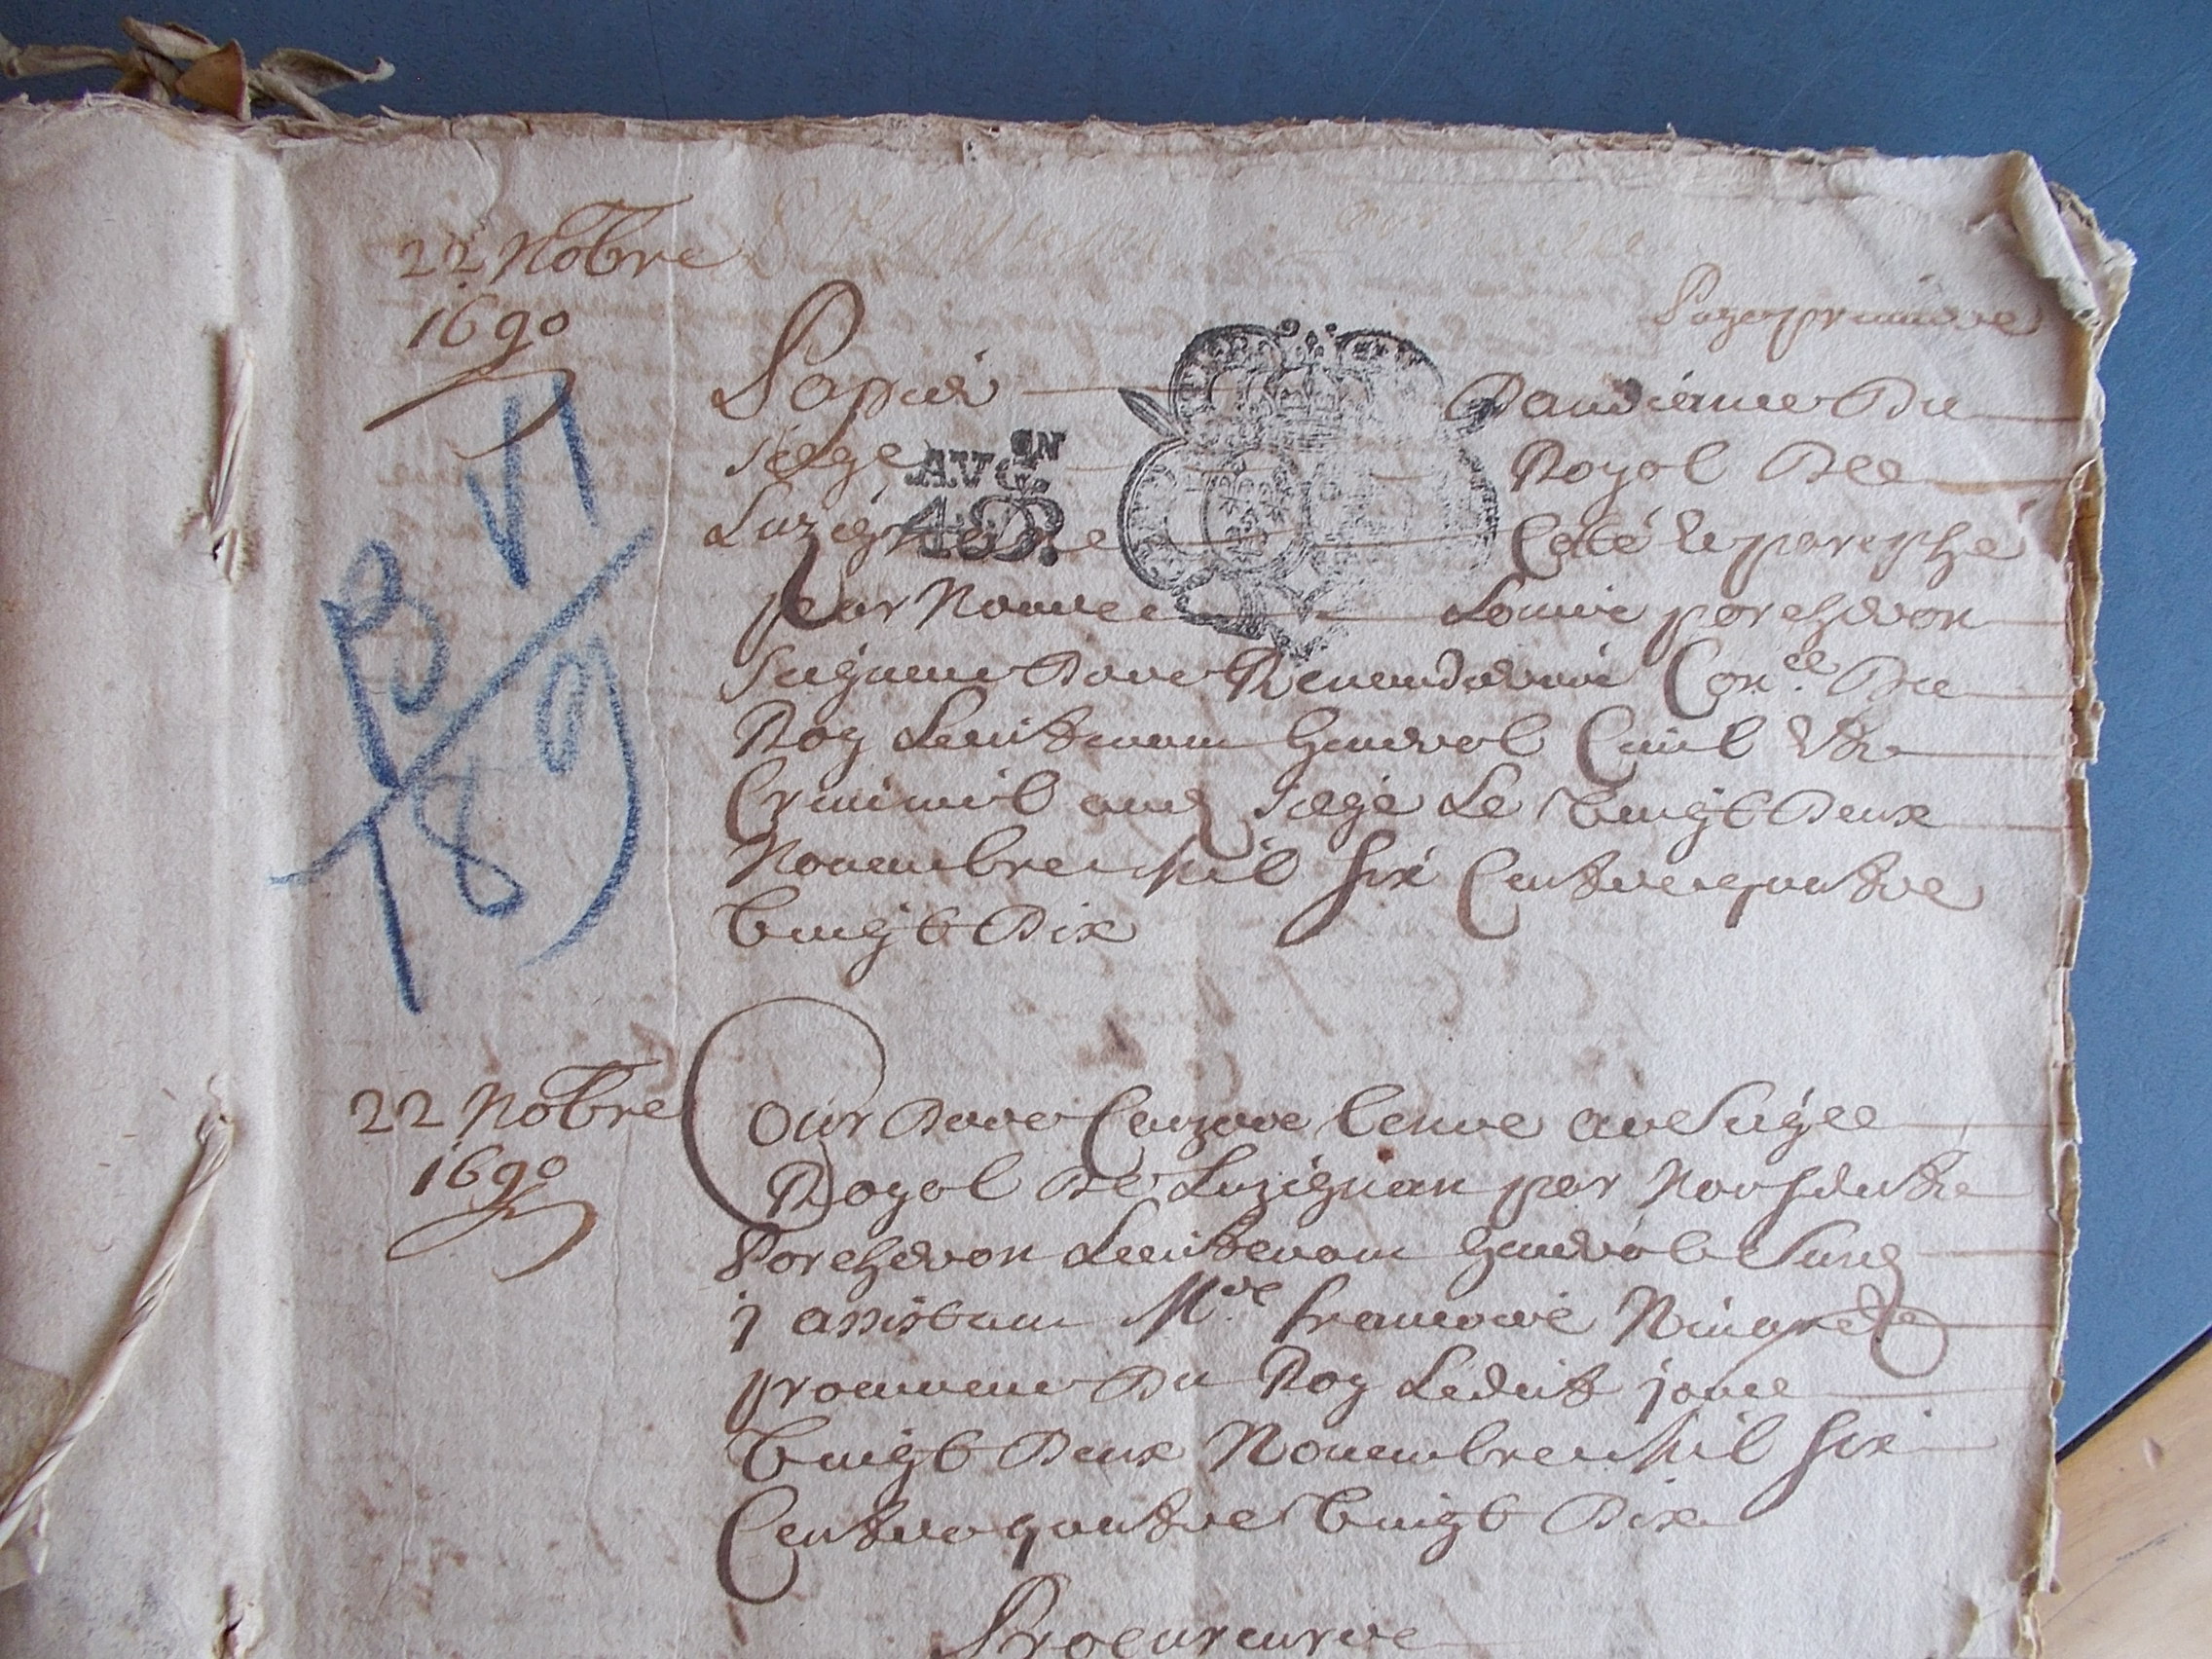 22 Nobre
1690
Page premiere
Papier Daudiance Du
siege AVG.EN Royal De
Luzignan 48D. Coté & paraphé
par Nous Louis porcheron
Seigneur Con.er Du
Roy Lieutenant General Civil & 
Criminel aud siege Le Vingt Deux
Nouembre Mil six Cent quatre
Vingt Dix
B VI
189
22 Nobre
1690
Cour tenue au Siege
Royal De Luzignan par Nous
Porcheron Lieutenant General
y assistant M.re francois
procureur Du Roy Ledit jour
Vingt Deux Nouembre Mil six
Cent quatre Vingt Dix
Procureurs